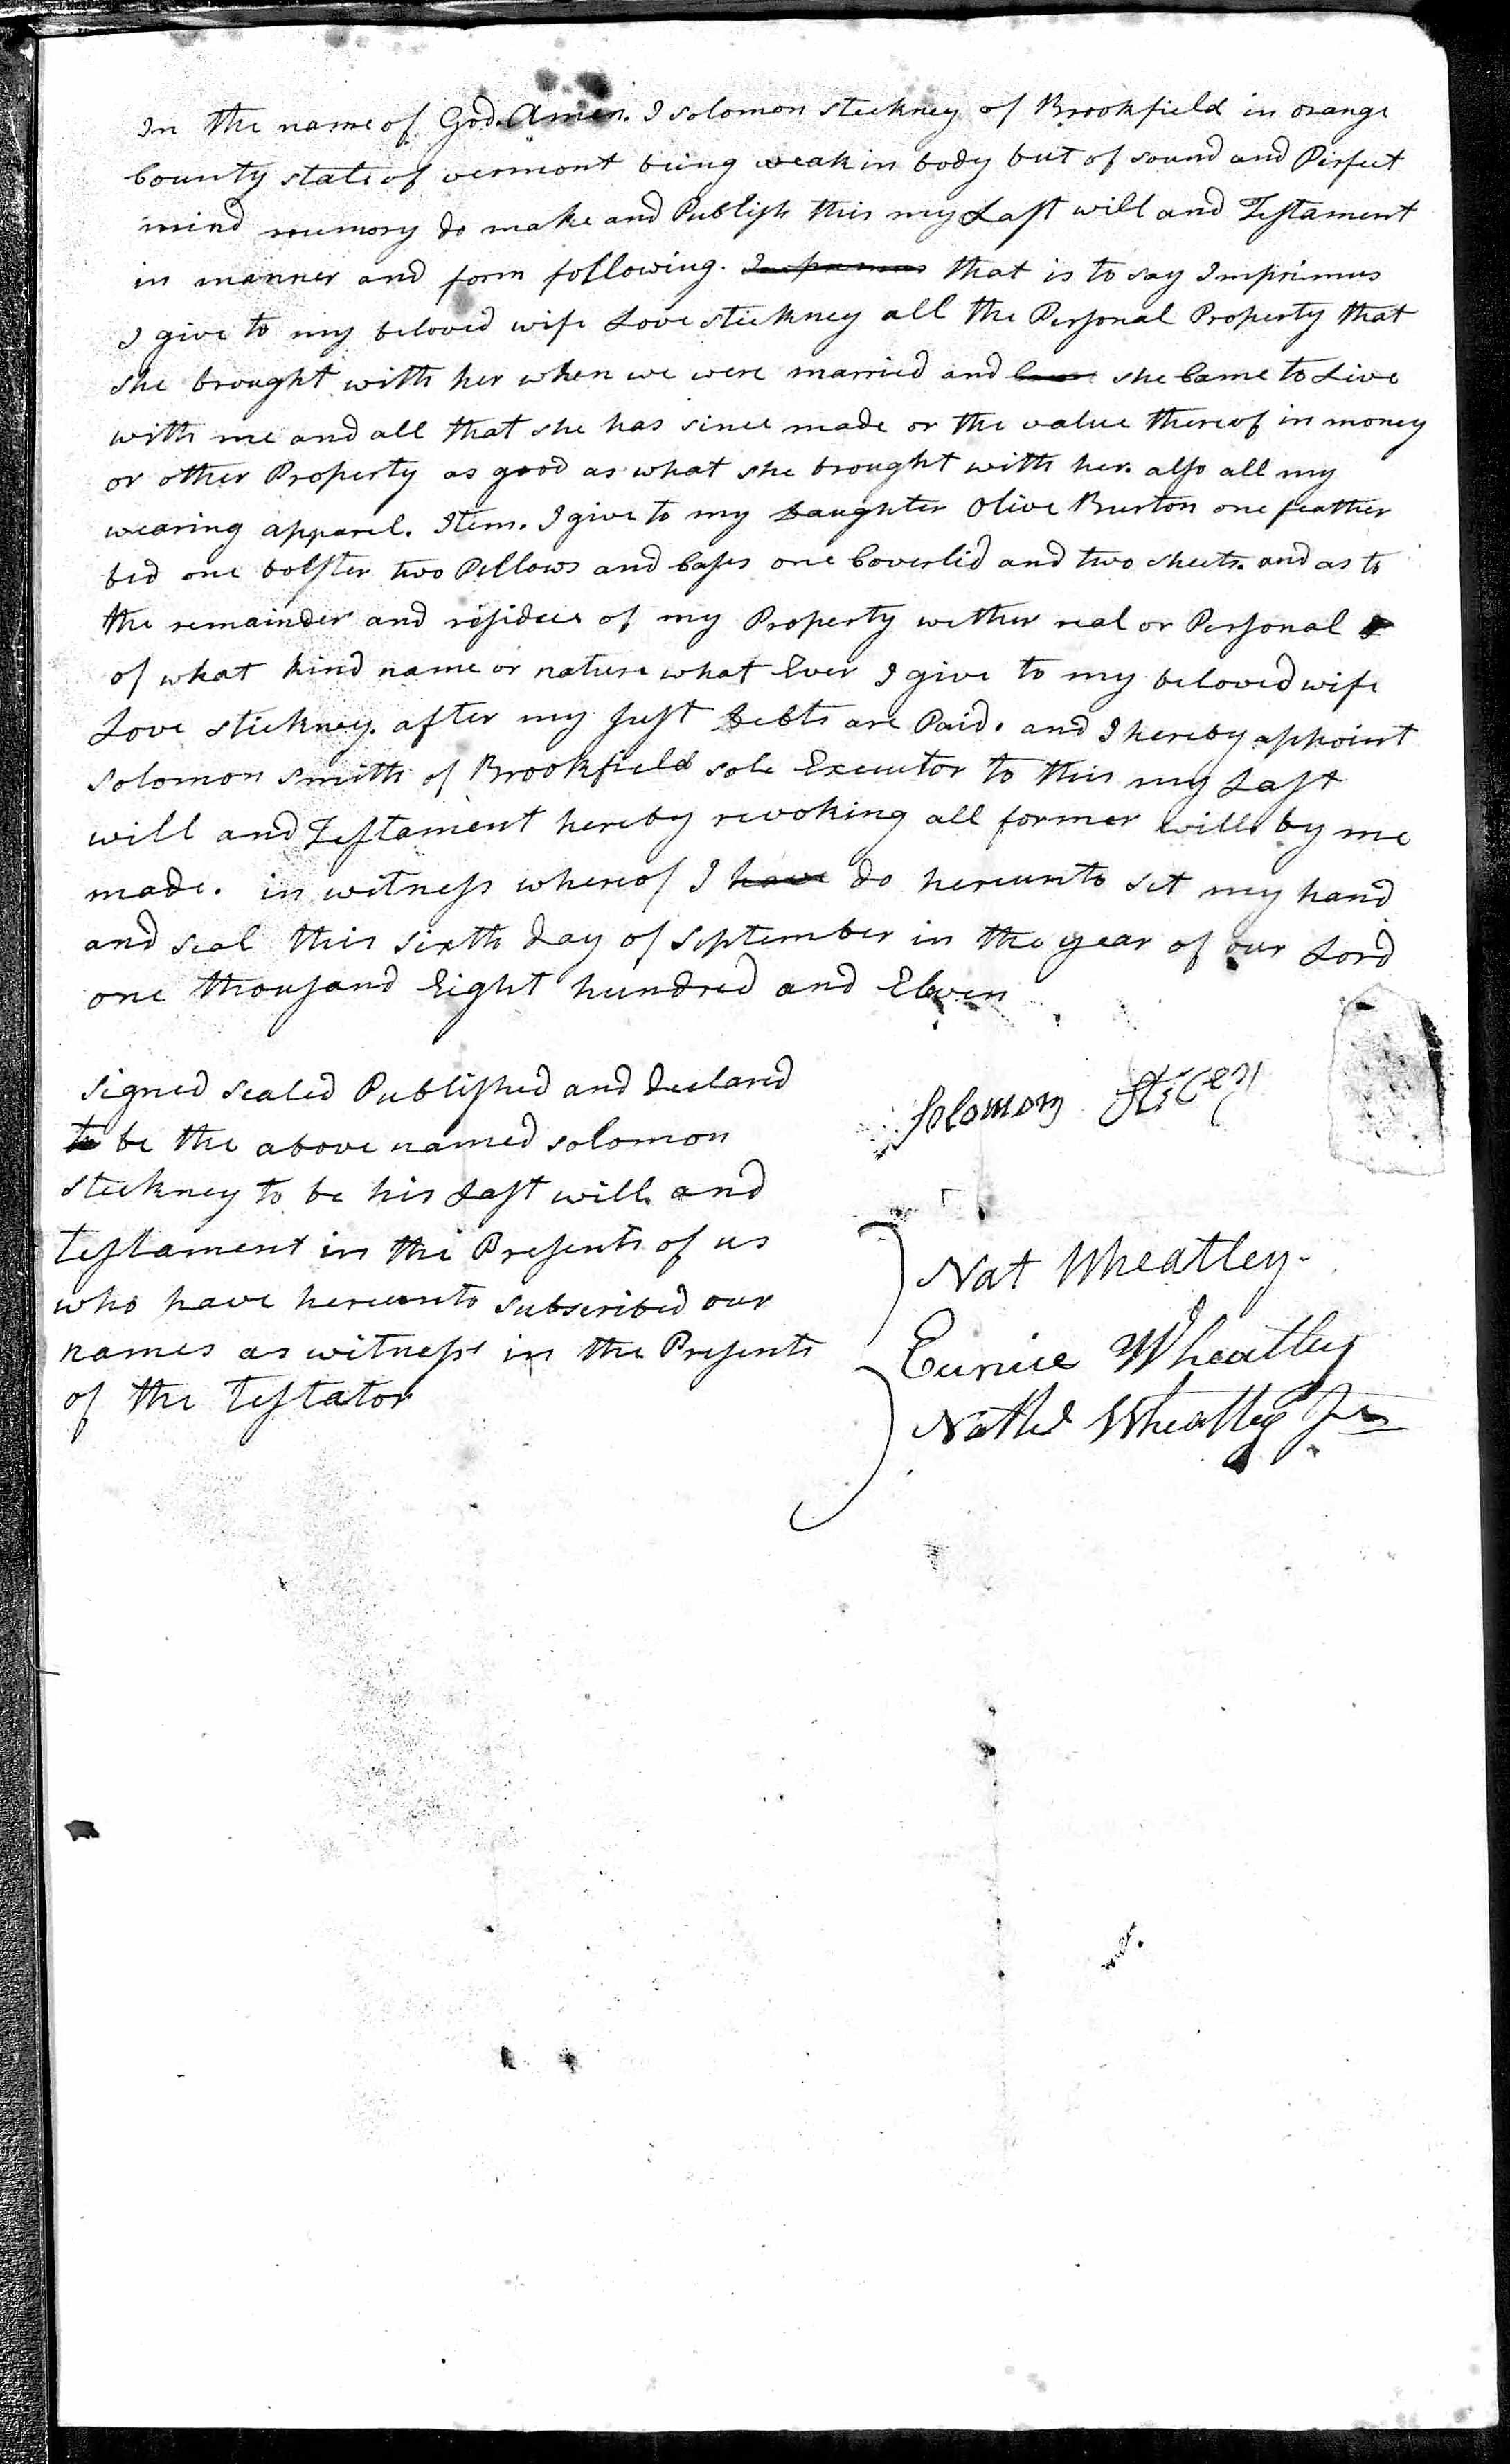 In the name of God. Amen. I solomon stickney of Brookfield in orange
County state of vermont being weak in body but of sound and Perfect
mind memory do make and Publish this my Last will and Testament
in manner and form following. Imprimus that is to say Imprimus
I give to my beloved wife Love stickney all the Personal Property that
she brought with her when we were married and she Came to Live
with me and all that she has since made or the value thereof in money
or other Property as good as what she brought with her. also all my
wearing apparel. Item. I give to my Daughter Olive Burton one feather
bed one bolster two Pillows and Cases one Coverlid and two sheets. and as to
the remainder and residue of my Property wether real or Personal
of what kind name or nature what Ever I give to my beloved wife
Love stickney. after my Just Debts are Paid. and I hereby appoint
solomon smith of Brookfield sole Executor to this my Last
will and Testament hereby revoking all former wills by me
made. in witness whereof I have do hereunto set my hand
and seal this sixth day of september in the year of our Lord
one thousand Eight hundred and Eleven
signed sealed Published and declared
to be the above named solomon
stickney to be his Last will and
testament in the Presents of us
who have hereunto subscribed our
names as witness in the Presents
of the Testator
Solomon
Nat Wheatley.
Eunice Wheatley
Nathel Wheatley Jr